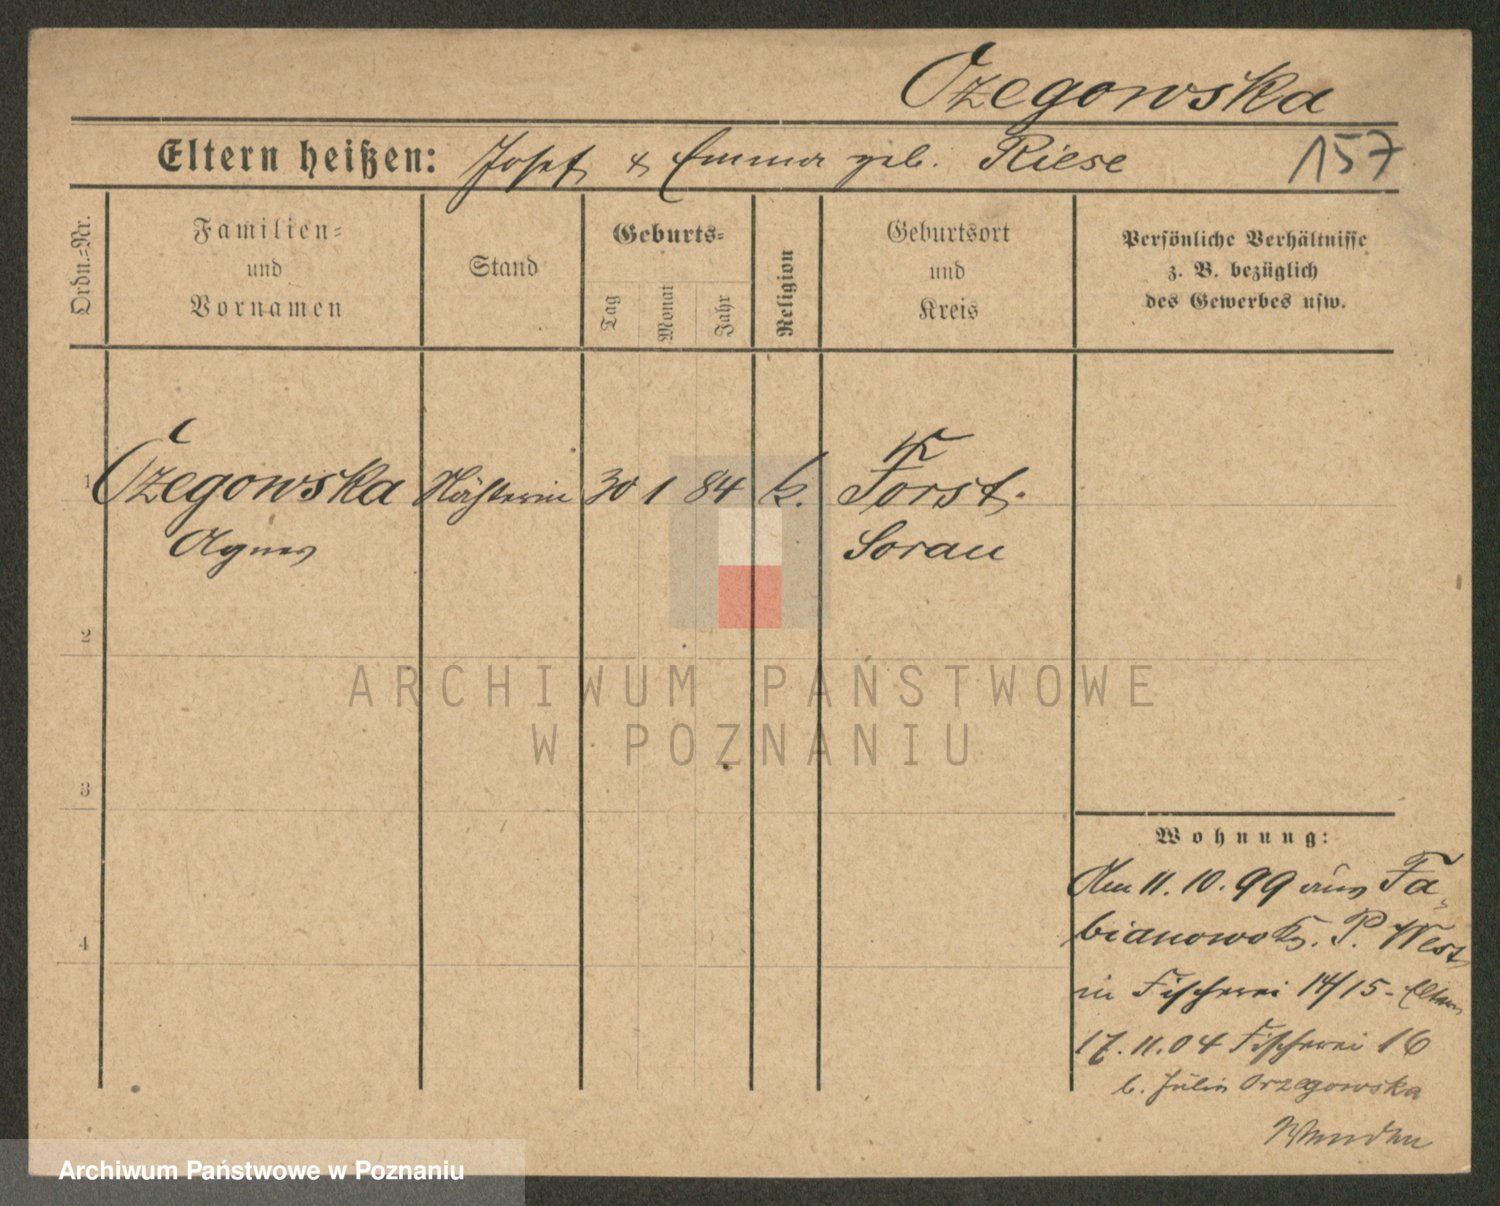 Ozegowska
Eltern heißen: Josef & Emma geb. Riese
157
Ordn.-Nr.
Familien-
und
Vornamen
Stand
Geburts-
Tag
Monat
Jahr
Religion
Geburtsort
und
Kreis
Persönliche Verhältnisse
z. B. bezüglich
des Gewerbes usw.
1 Ozegowska Nähterin 30 1 84 k. Forst
Agnes Sorau
2
3
4
Wohnung:
Am 11.10.99 aus Fa-
bianowo Kr. P. West
in Fischerei 14/15 - Eltern
17.11.04 Fischerei 16
b. Julie Orzegowska
Wenden
ARCHIWUM PAŃSTWOWE
W POZNANIU
Archiwum Państwowe w Poznaniu